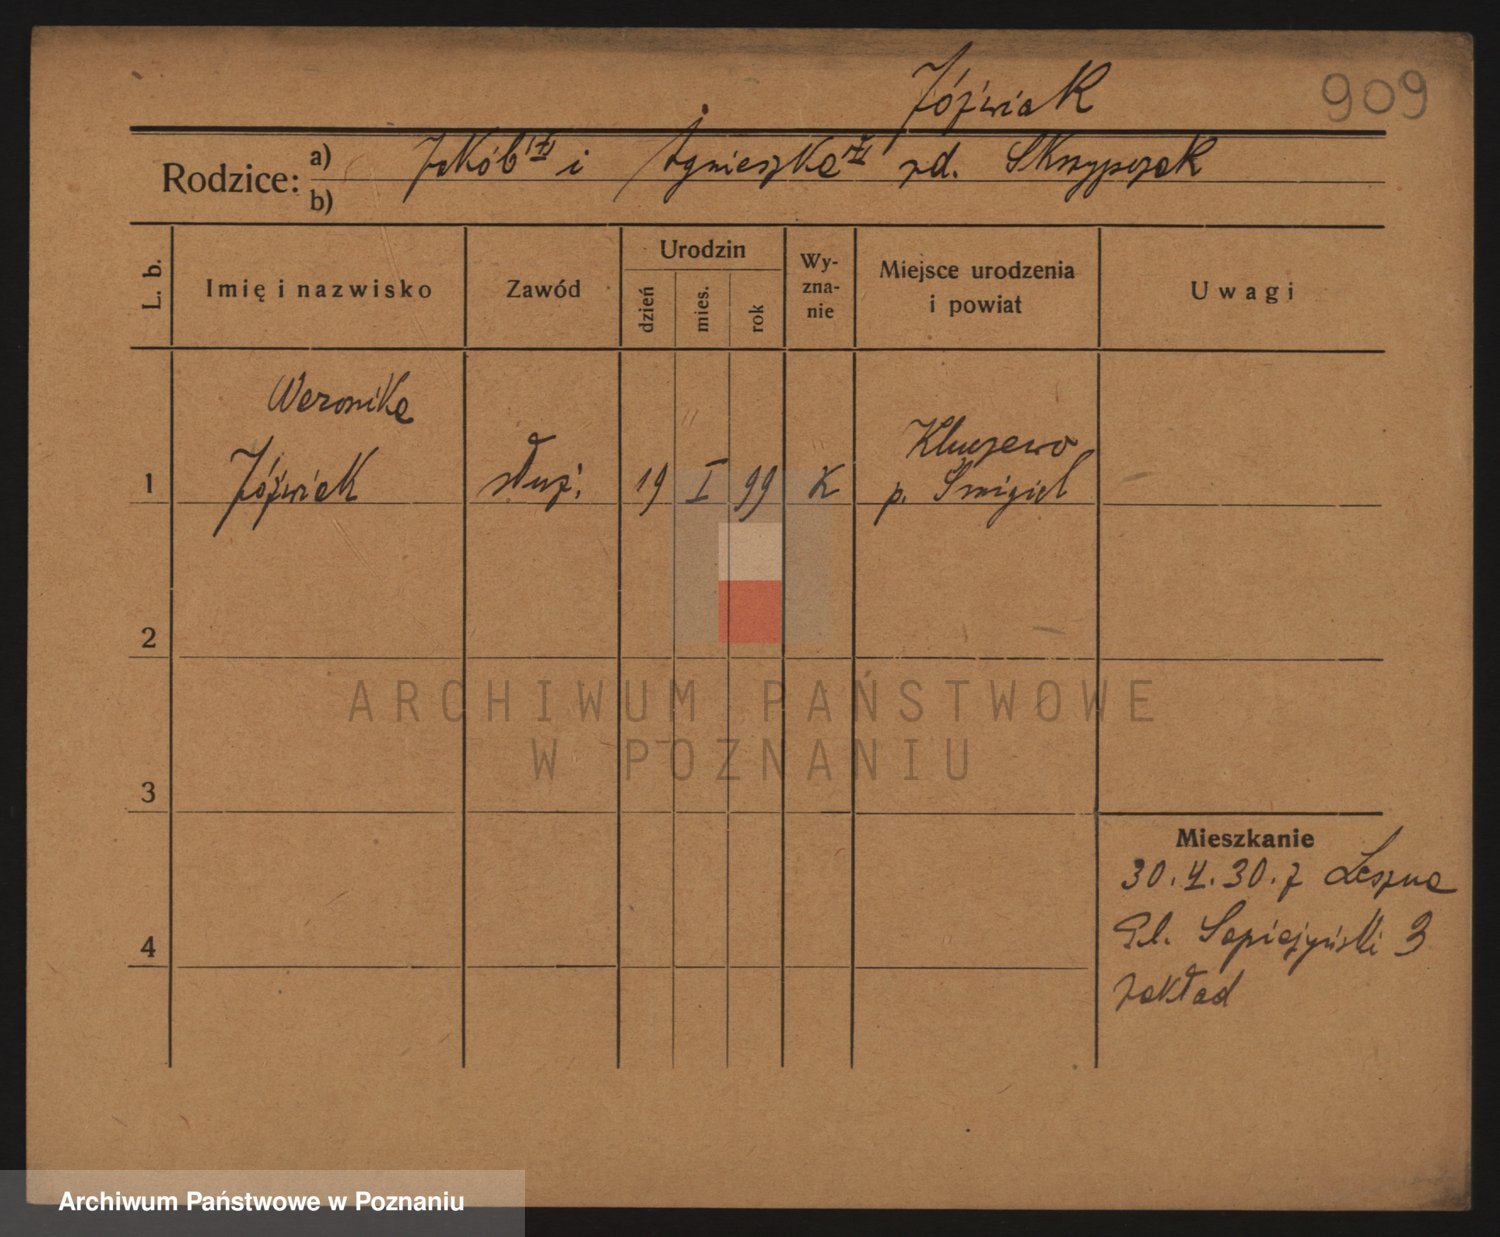 Jóźwiak
909
Rodzice:
a) Jakób i Agnieszka zd. Skrzypczak
b)
L. b.
Imię i nazwisko
Zawód
Urodzin
dzień
mies.
rok
Wy-
zna-
nie
Miejsce urodzenia
i powiat
Uwagi
Weronika
1 Jóźwiak służ. 19 I 99 K Kluczewo
p. Śmigiel
2
3
4
Mieszkanie
30. 4. 30. z Leszna
Pl. Sapieżyński 3
zakład
ARCHIWUM PAŃSTWOWE
W POZNANIU
Archiwum Państwowe w Poznaniu